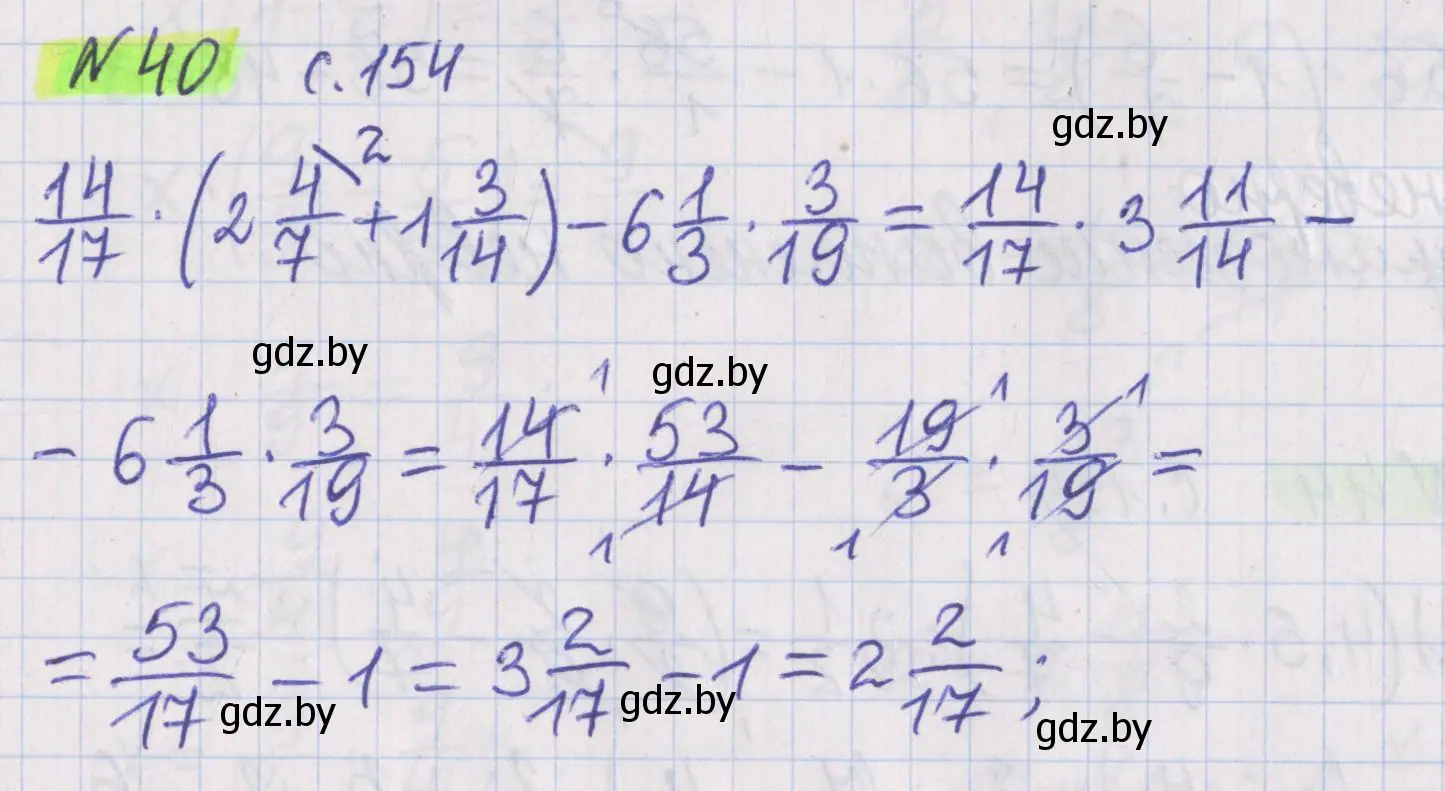 N 40 с.154
gdz.by
14/17 · (2 4/7 \2 + 1 3/14) - 6 1/3 · 3/19 = 14/17 · 3 11/14 -
gdz.by gdz.by
- 6 1/3 · 3/19 = 14/17 · 53/14 - 19/3 · 3/19 =
1 1 1
1 1 1
= 53/17 - 1 = 3 2/17 - 1 = 2 2/17 ;
gdz.by gdz.by gdz.by